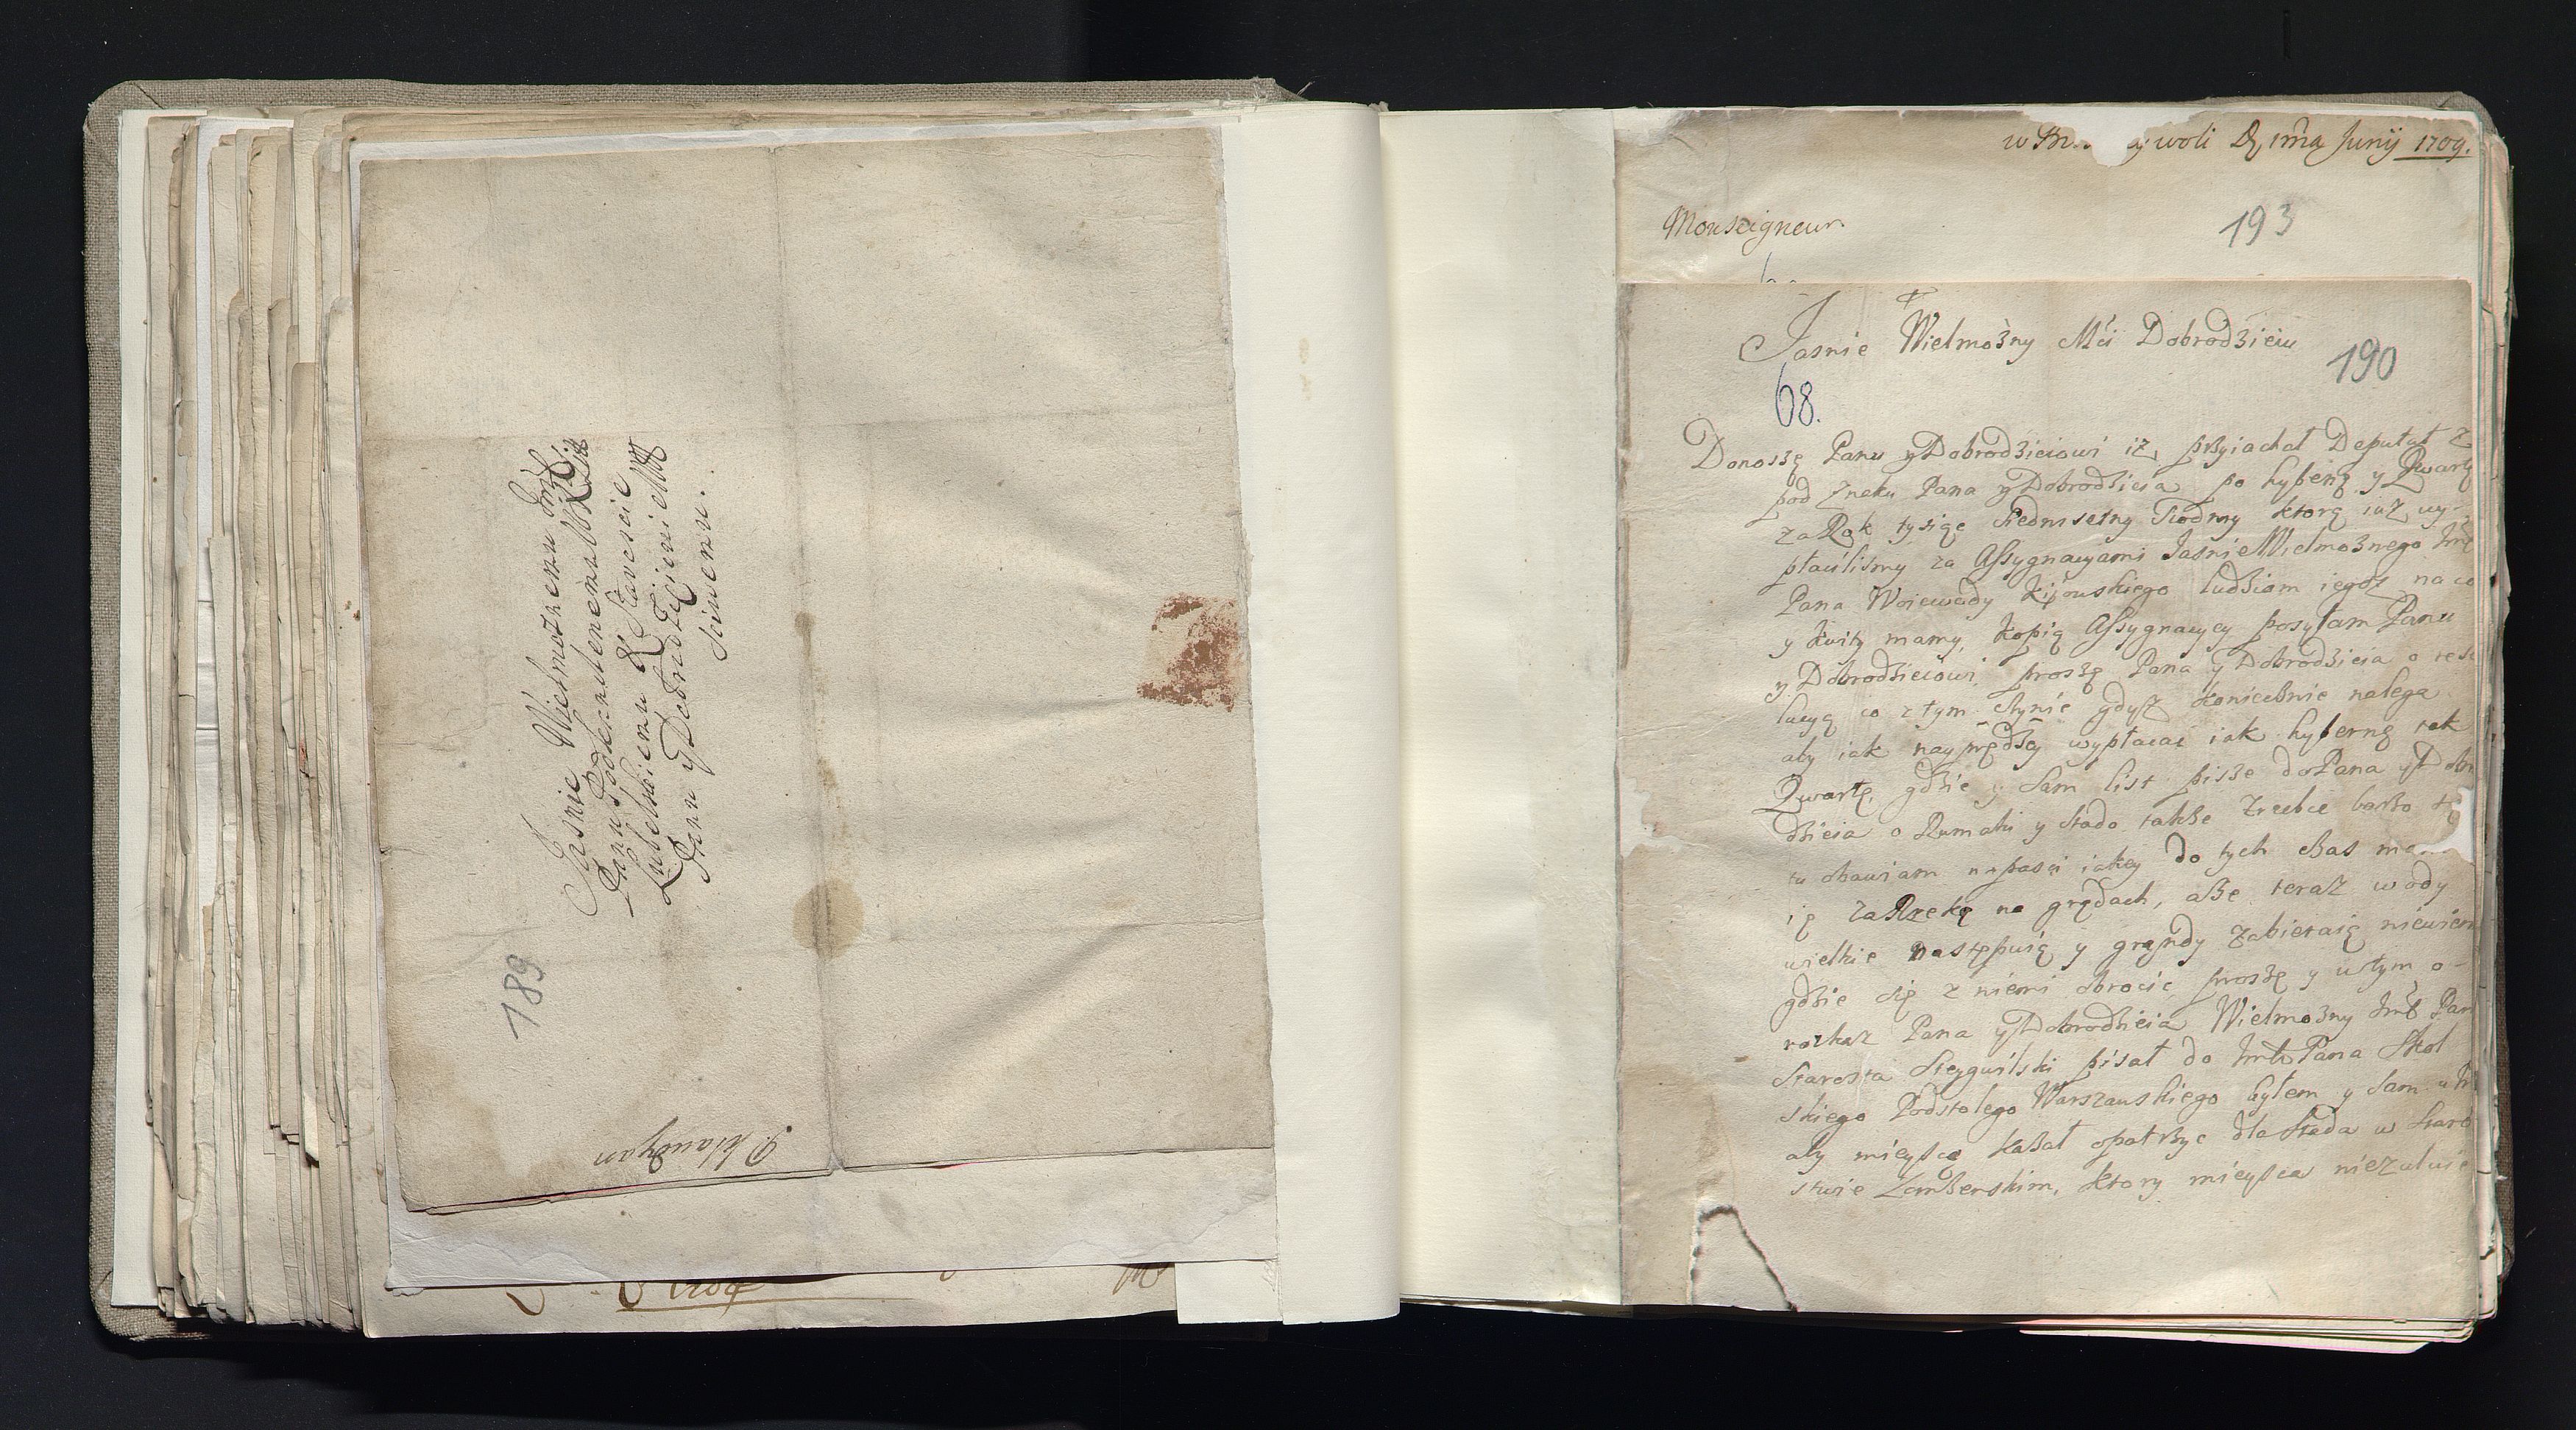 Jasnie Wielmożnemu Jmć
Panu Podskarbiemu
Lubelskiemu & Staroscie
Panu y Dobrodzieiowi
służemu.
189
P. Klaudyan
1709
w woli D 1ma Junij 1709.
Monseigneur
193
Jasnie Wielmożny Mći Dobrodzieiu
190
68.
Donoszę Panu y Dobrodzieiowi iż przyiachał Deputat z
pod znaku Pana y Dobrodzieia po hybernę y Qwartę
za Rok tysiąc siedmsetny siodmy ktorą iuż wy-
płacilismy za Assygnacyami Jasnie Wielmożnego Jmć
Pana Woiewody Kijowskiego ludziom iegoż na co
y kwity mamy, kopią Assygnacyey posyłam Panu
y Dobrodzieiowi, proszę Pana y Dobrodzieia o reso
lucyą co z tym czynić gdyż koniecznie nalega
aby iak nayprędzey wypłacać iak hybernę tak
Qwartę, gdzie y sam list pisze do Pana y Dobro
dzieia o Rumaki y stado także zrebce barzo się
tu obawiam napasci iakey do tych czas
ię za Rzeką na grądach, asze teraz wody
wielkie następuią y grądy zabieraią niewiem
gdzie się z niemi obrocić, proszę y w tym o-
rozkaz Pana y Dobrodzieia Wielmożny Jmć Pan
Starosta pisał do Jmci Pana Skol
skiego Podstolego Warszawskiego byłem y sam u
aby mieysce kazał opatrzyc dla stada w Staro
stwie ktory mieysca nieżałuie